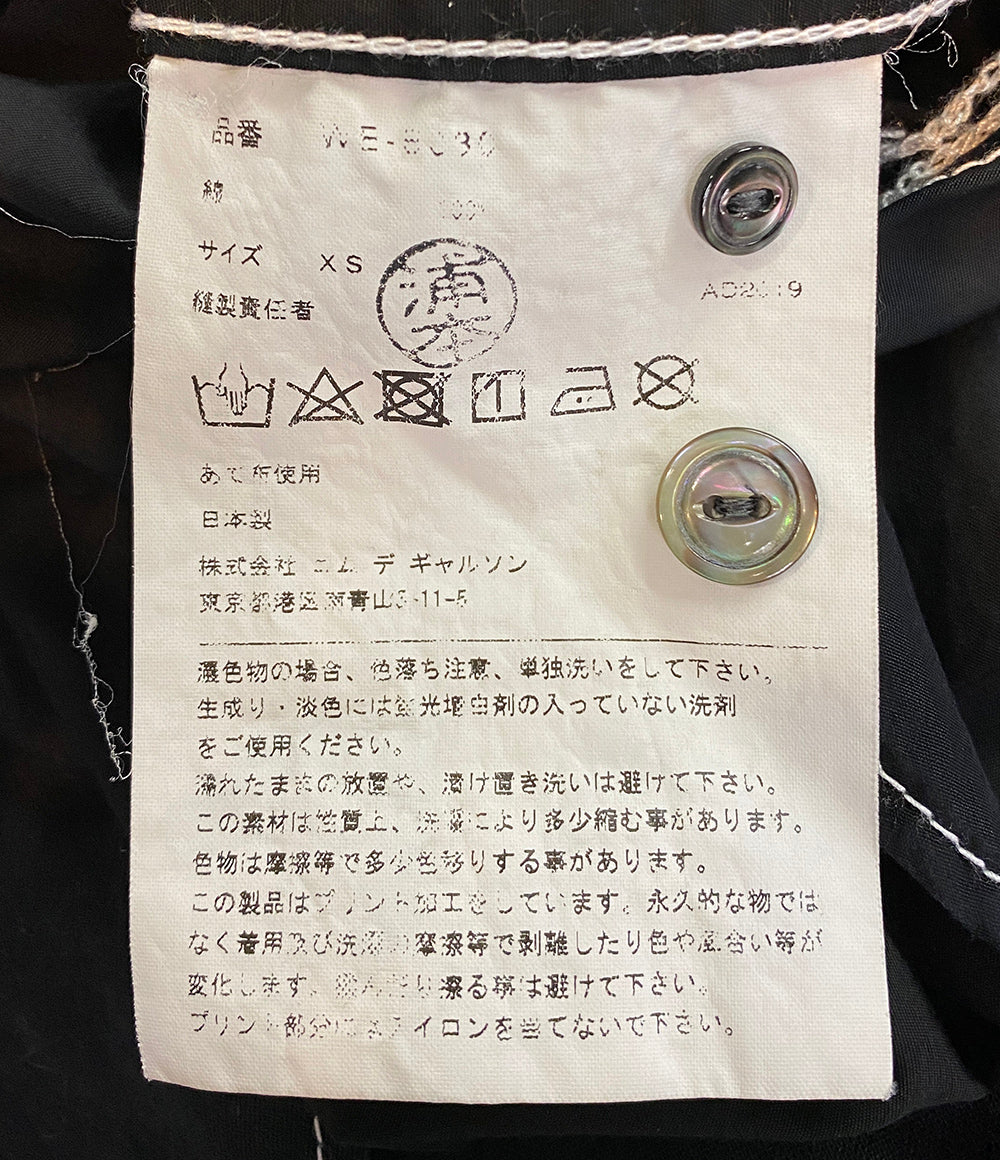 品番 WE-B030
綿 100%
サイズ XS
AD2019
縫製責任者 浦本
あて布使用
日本製
株式会社 コム デ ギャルソン
東京都港区南青山5-11-5
濃色物の場合、色落ち注意、単独洗いをして下さい。
生成り・淡色には蛍光増白剤の入っていない洗剤
をご使用ください。
濡れたままの放置や、漬け置き洗いは避けて下さい。
この素材は性質上、洗濯により多少縮む事があります。
色物は摩擦等で多少色移りする事があります。
この製品はプリント加工をしています。永久的な物では
なく着用及び洗濯の摩擦等で剥離したり色や風合い等が
変化します。揉んだり擦る事は避けて下さい。
プリント部分にはアイロンを当てないで下さい。